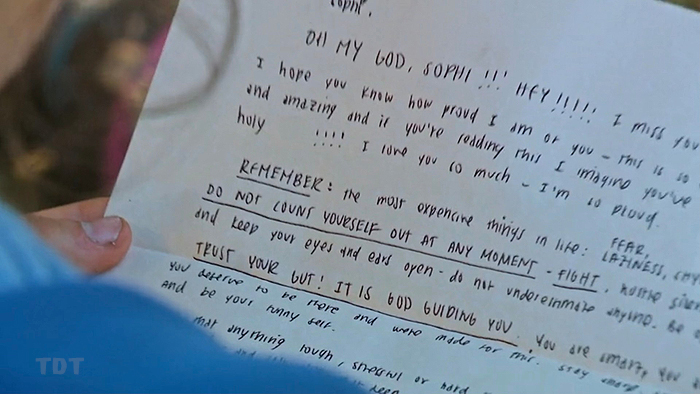 Sophi,
OH MY GOD, SOPHI!!! HEY!!!!! I miss you
I hope you know how proud I am of you - this is so
and amazing and if you're reading this I imagine you've
holy !!!! I love you so much - I'm so proud.
REMEMBER: the most expensive things in life: FEAR,
LAZINESS,
DO NOT COUNT YOURSELF OUT AT ANY MOMENT - FIGHT, hustle
and keep your eyes and ears open - do not underestimate anyone. Be
TRUST YOUR GUT! IT IS GOD GUIDING YOU. You are smart, you
you deserve to be there and were made for this. Stay
and be your funny self.
anything tough, stressful or hard
TDT